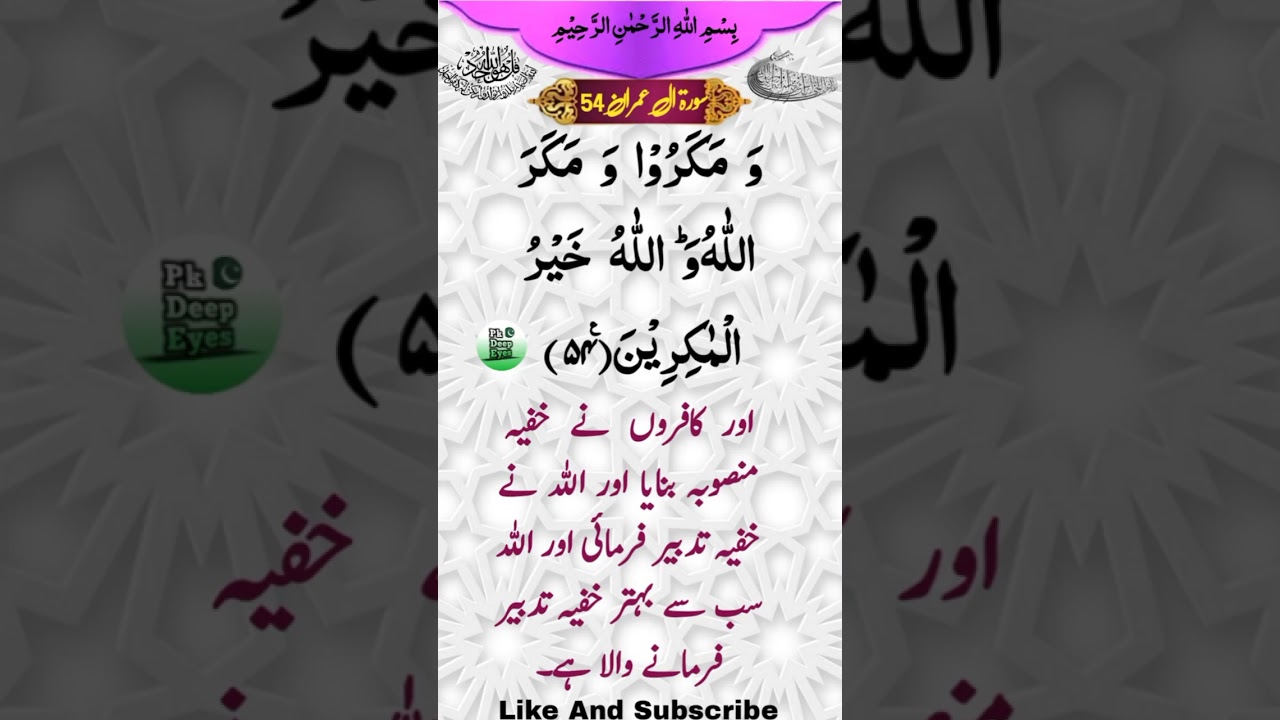 بِسْمِ اللّٰهِ الرَّحْمٰنِ الرَّحِیْمِ
سورۃ اٰل عمران 54
وَ مَكَرُوْا وَ مَكَرَ
اللّٰهُؕ وَ اللّٰهُ خَیْرُ
الْمٰكِرِیْنَ۠(۵۴)
Pk
Deep
Eyes
اور کافروں نے خفیہ
منصوبہ بنایا اور اللہ نے
خفیہ تدبیر فرمائی اور اللہ
سب سے بہتر خفیہ تدبیر
فرمانے والا ہے۔
Like And Subscribe
Pk
Deep
Eyes
خَیْرُ
اور
خفیہ